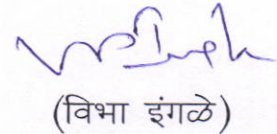 (विभा इंगळे)